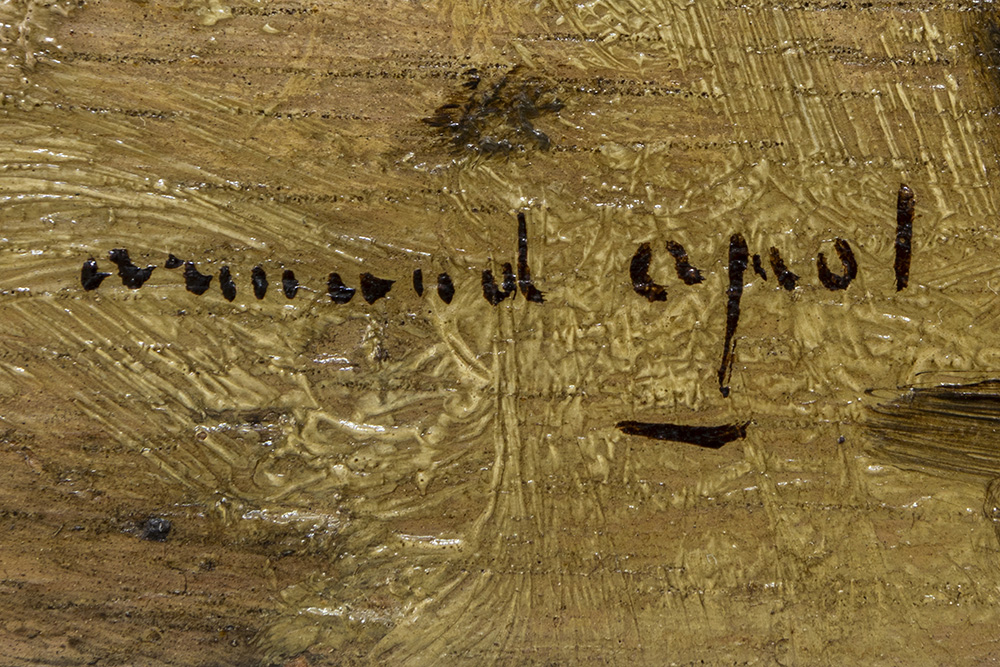 armand apol